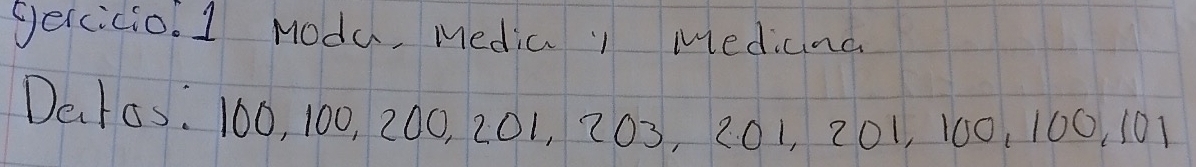 Ejercicio. 1 Moda, Media y Mediana
Datos: 100, 100, 200, 201, 203, 201, 201, 100, 100, 101